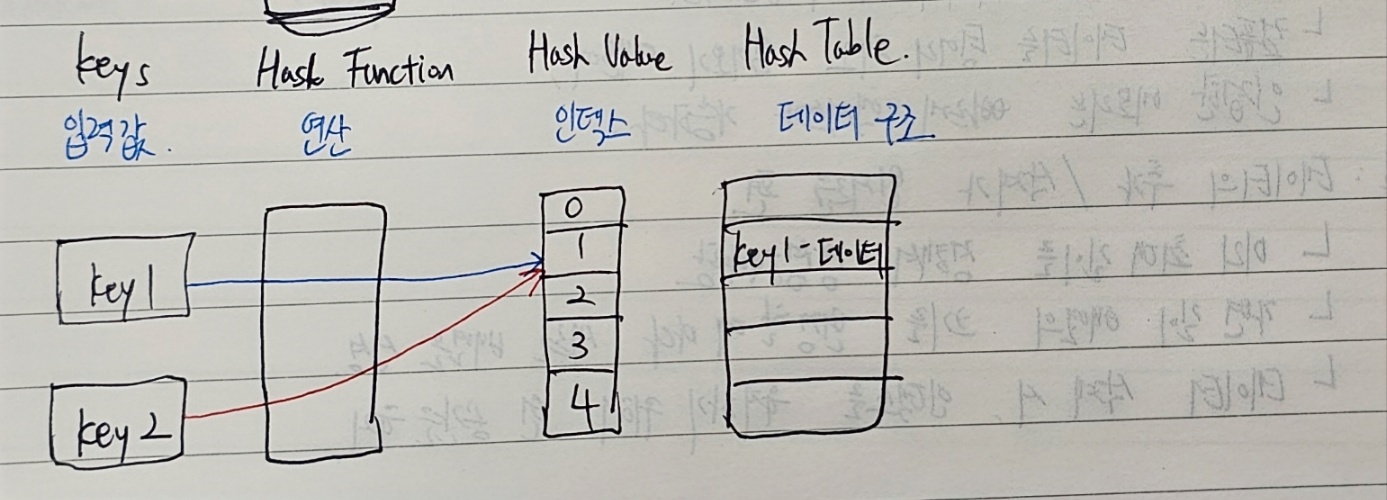 keys Hash Function Hash Value Hash Table.
입력값. 연산 인덱스 데이터 구조
0
key1 1 key1-데이터
2
3
key2 4